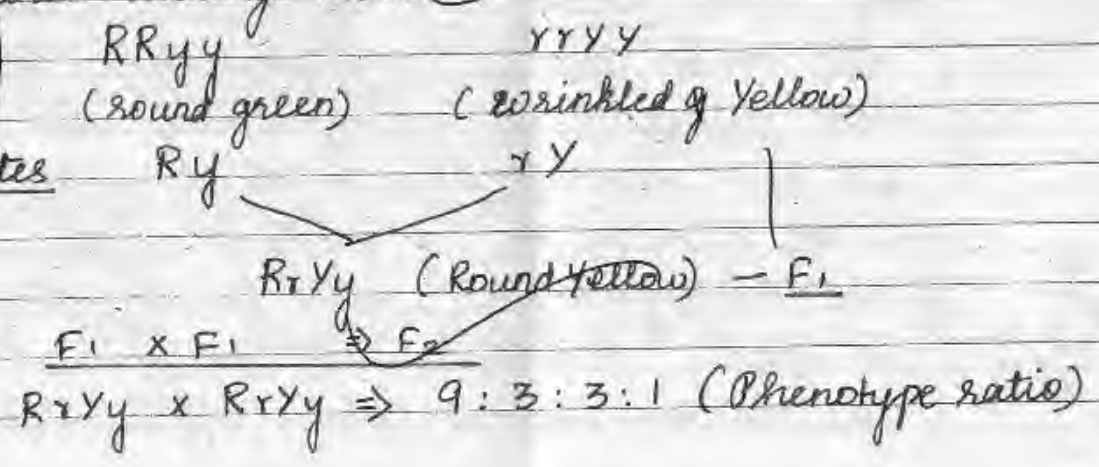 RRyy rrYY
(round green) (wrinkled Yellow)
tes Ry rY
RrYy (Round Yellow) – F1
F1 x F1 ⇒ F2
RrYy x RrYy ⇒ 9 : 3 : 3 : 1 (Phenotype ratio)